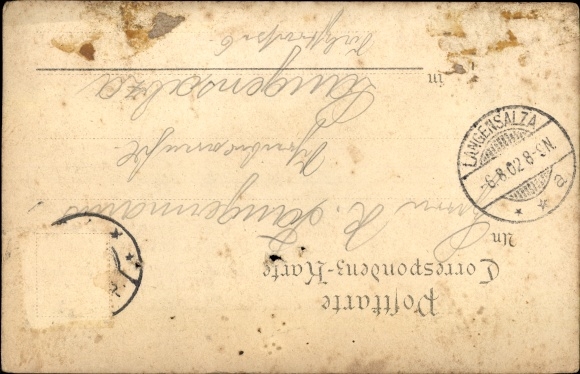 Postkarte
Correspondenz-Karte
An
Herrn K. Langermann
in Langensalza
LANGENSALZA
-6.8.02 8-9N.
a